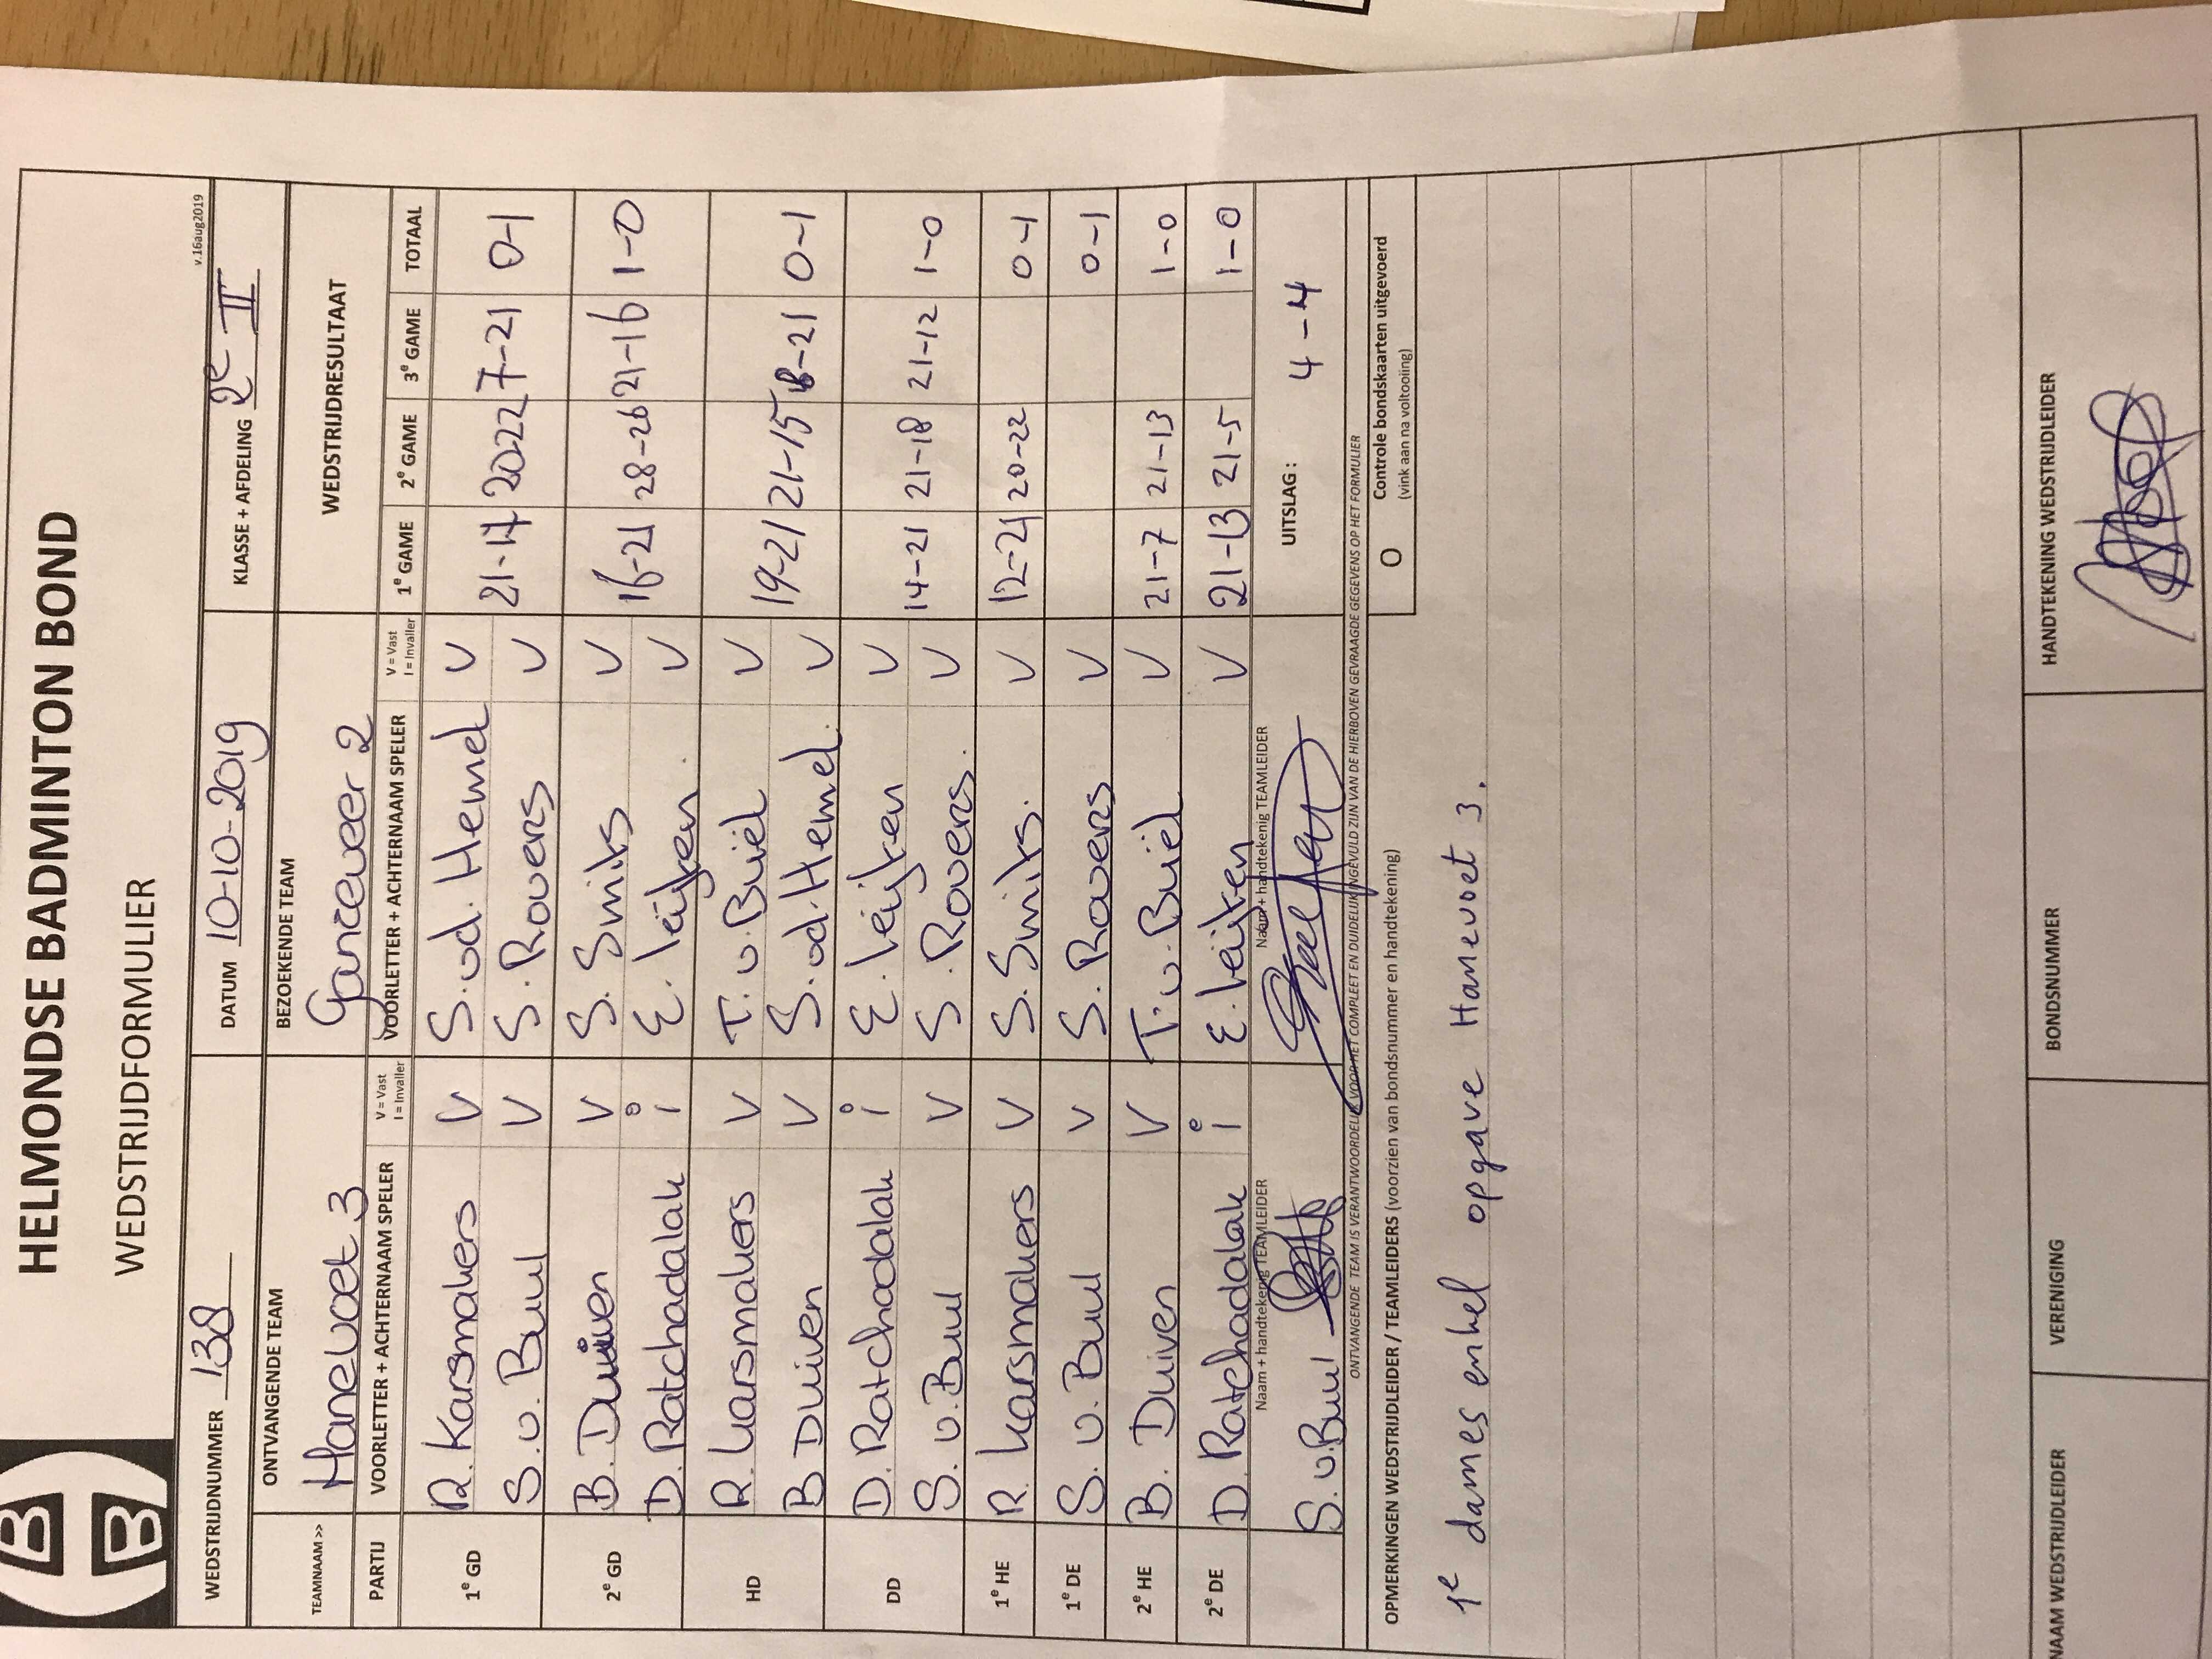 HELMONDSE BADMINTON BOND
WEDSTRIJDFORMULIER
v.16aug2019
WEDSTRIJDNUMMER 138 DATUM 10-10-2019 KLASSE + AFDELING 2e II
ONTVANGENDE TEAM BEZOEKENDE TEAM WEDSTRIJDRESULTAAT
TEAMNAAM >> Hanevoet 3 Ganzeveer 2
PARTIJ VOORLETTER + ACHTERNAAM SPELER V = Vast I = Invaller VOORLETTER + ACHTERNAAM SPELER V = Vast I = Invaller 1e GAME 2e GAME 3e GAME TOTAAL
1e GD R. Karsmakers V S. vd. Hemel V 21-17 2022 7-21 0-1
S. v. Buul V S. Rovers V
2e GD B. Duiven V S. Smits V 16-21 28-26 21-16 1-0
D. Ratchadalak i E. Leijten V
HD R. Karsmakers V T. v. Buël V 19-21 21-15 18-21 0-1
B Duiven V S. vd. Hemel. V
DD D. Ratchadalak i E. Leijten V 14-21 21-18 21-12 1-0
S. v. Buul V S. Rovers. V
1e HE R. Karsmakers V S. Smits. V 12-21 20-22 0-1
1e DE S. v. Buul V S. Rovers V 0-1
2e HE B. Duiven V T. v. Buël V 21-7 21-13 1-0
2e DE D. Ratchadalak i E. Leijten V 21-13 21-5 1-0
Naam + handtekenig TEAMLEIDER Naam + handtekenig TEAMLEIDER
S. v. Buul UITSLAG: 4-4
ONTVANGENDE TEAM IS VERANTWOORDELIJK VOOR HET COMPLEET EN DUIDELIJK INGEVULD ZIJN VAN DE HIERBOVEN GEVRAAGDE GEGEVENS OP HET FORMULIER
OPMERKINGEN WEDSTRIJDLEIDER / TEAMLEIDERS (voorzien van bondsnummer en handtekening) O Controle bondskaarten uitgevoerd
(vink aan na voltooiing)
1e dames enkel opgave Hanevoet 3.
NAAM WEDSTRIJDLEIDER VERENIGING BONDSNUMMER HANDTEKENING WEDSTRIJDLEIDER